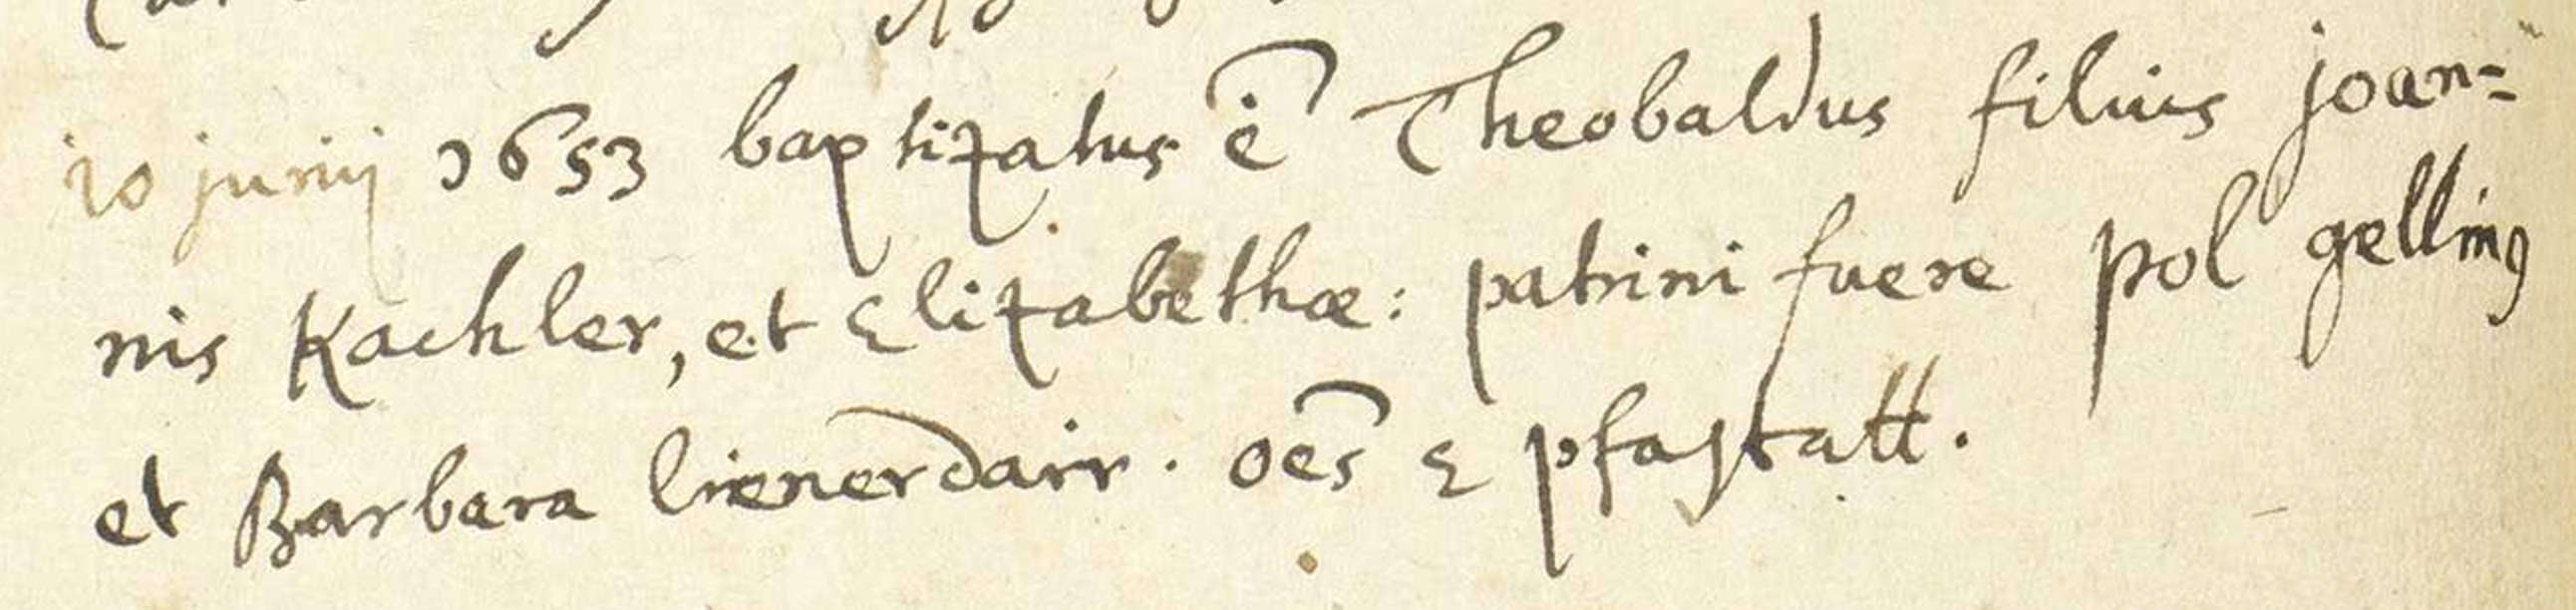 10 junij 1653 baptizatus ē Theobaldus filius joan=
nis Kachler, et Elizabethæ: patrini fuere pol gelling
et Barbara lienerdair. oēs e pfastatt.